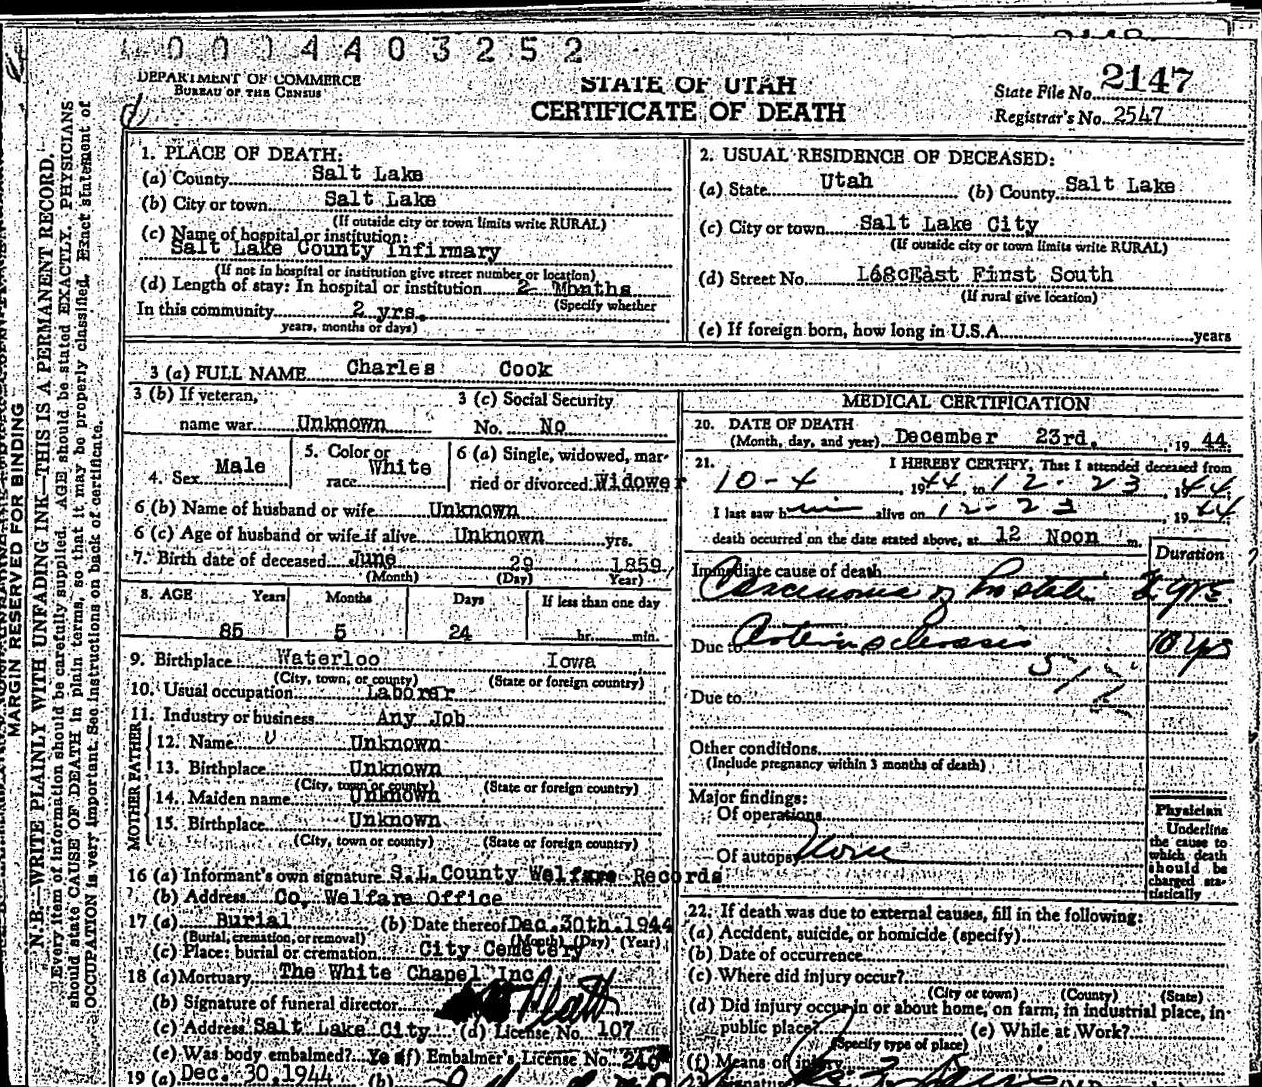 0004403252
DEPARTMENT OF COMMERCE
BUREAU OF THE CENSUS
STATE OF UTAH
CERTIFICATE OF DEATH
State File No. 2147
Registrar's No. 2547
MARGIN RESERVED FOR BINDING
N. B.—WRITE PLAINLY WITH UNFADING INK—THIS IS A PERMANENT RECORD.
Every item of information should be carefully supplied. AGE should be stated EXACTLY. PHYSICIANS
should state CAUSE OF DEATH in plain terms, so that it may be properly classified. Exact statement of
OCCUPATION is very important. See instructions on back of certificate.
1. PLACE OF DEATH:
(a) County Salt Lake
(b) City or town Salt Lake
(If outside city or town limits write RURAL)
(c) Name of hospital or institution:
Salt Lake County Infirmary
(If not in hospital or institution give street number or location)
(d) Length of stay: In hospital or institution 2 Months
(Specify whether
In this community 2 yrs.
years, months or days)
2. USUAL RESIDENCE OF DECEASED:
(a) State Utah (b) County Salt Lake
(c) City or town Salt Lake City
(If outside city or town limits write RURAL)
(d) Street No. East First South
(If rural give location)
(e) If foreign born, how long in U.S.A. years
3 (a) FULL NAME Charles Cook
3 (b) If veteran, 3 (c) Social Security
name war Unknown No. No
4. Sex Male 5. Color or race White 6 (a) Single, widowed, mar-
ried or divorced Widower
6 (b) Name of husband or wife Unknown
6 (c) Age of husband or wife if alive Unknown yrs.
7. Birth date of deceased June 29 1859
(Month) (Day) Year)
8. AGE Years Months Days If less than one day
85 5 24 hr. min.
9. Birthplace Waterloo Iowa
(City, town, or county) (State or foreign country)
10. Usual occupation Laborer
11. Industry or business Any Job
FATHER
12. Name Unknown
13. Birthplace Unknown
(City, town or county) (State or foreign country)
MOTHER
14. Maiden name Unknown
15. Birthplace Unknown
(City, town or county) (State or foreign country)
16 (a) Informant's own signature S.L. County Welfare Records
(b) Address Co. Welfare Office
17 (a) Burial (b) Date thereof Dec. 30th. 1944
(Burial, cremation, or removal) (Month) (Day) (Year)
(c) Place: burial or cremation City Cemetery
18 (a) Mortuary The White Chapel Inc
(b) Signature of funeral director
(c) Address Salt Lake City (d) License No. 107
(e) Was body embalmed? Yes (f) Embalmer's License No.
19 (a) Dec. 30, 1944 (b)
MEDICAL CERTIFICATION
20. DATE OF DEATH
(Month, day, and year) December 23rd. , 19 44
21. I HEREBY CERTIFY, That I attended deceased from
10-4 , 1944, to 12-23 , 1944
I last saw him alive on 12-23 , 1944
death occurred on the date stated above, at 12 Noon m.
Duration
Immediate cause of death
Carcinoma of Prostate 2 yrs.
Due to Arteriosclerosis 10 yrs
Due to
Other conditions
(Include pregnancy within 3 months of death)
Major findings:
Of operations
Of autopsy None
Physician
Underline
the cause to
which death
should be
charged sta-
tistically
22. If death was due to external causes, fill in the following:
(a) Accident, suicide, or homicide (specify)
(b) Date of occurrence
(c) Where did injury occur?
(City or town) (County) (State)
(d) Did injury occur in or about home, on farm, in industrial place, in
public place? (e) While at Work?
(Specify type of place)
(f) Means of injury